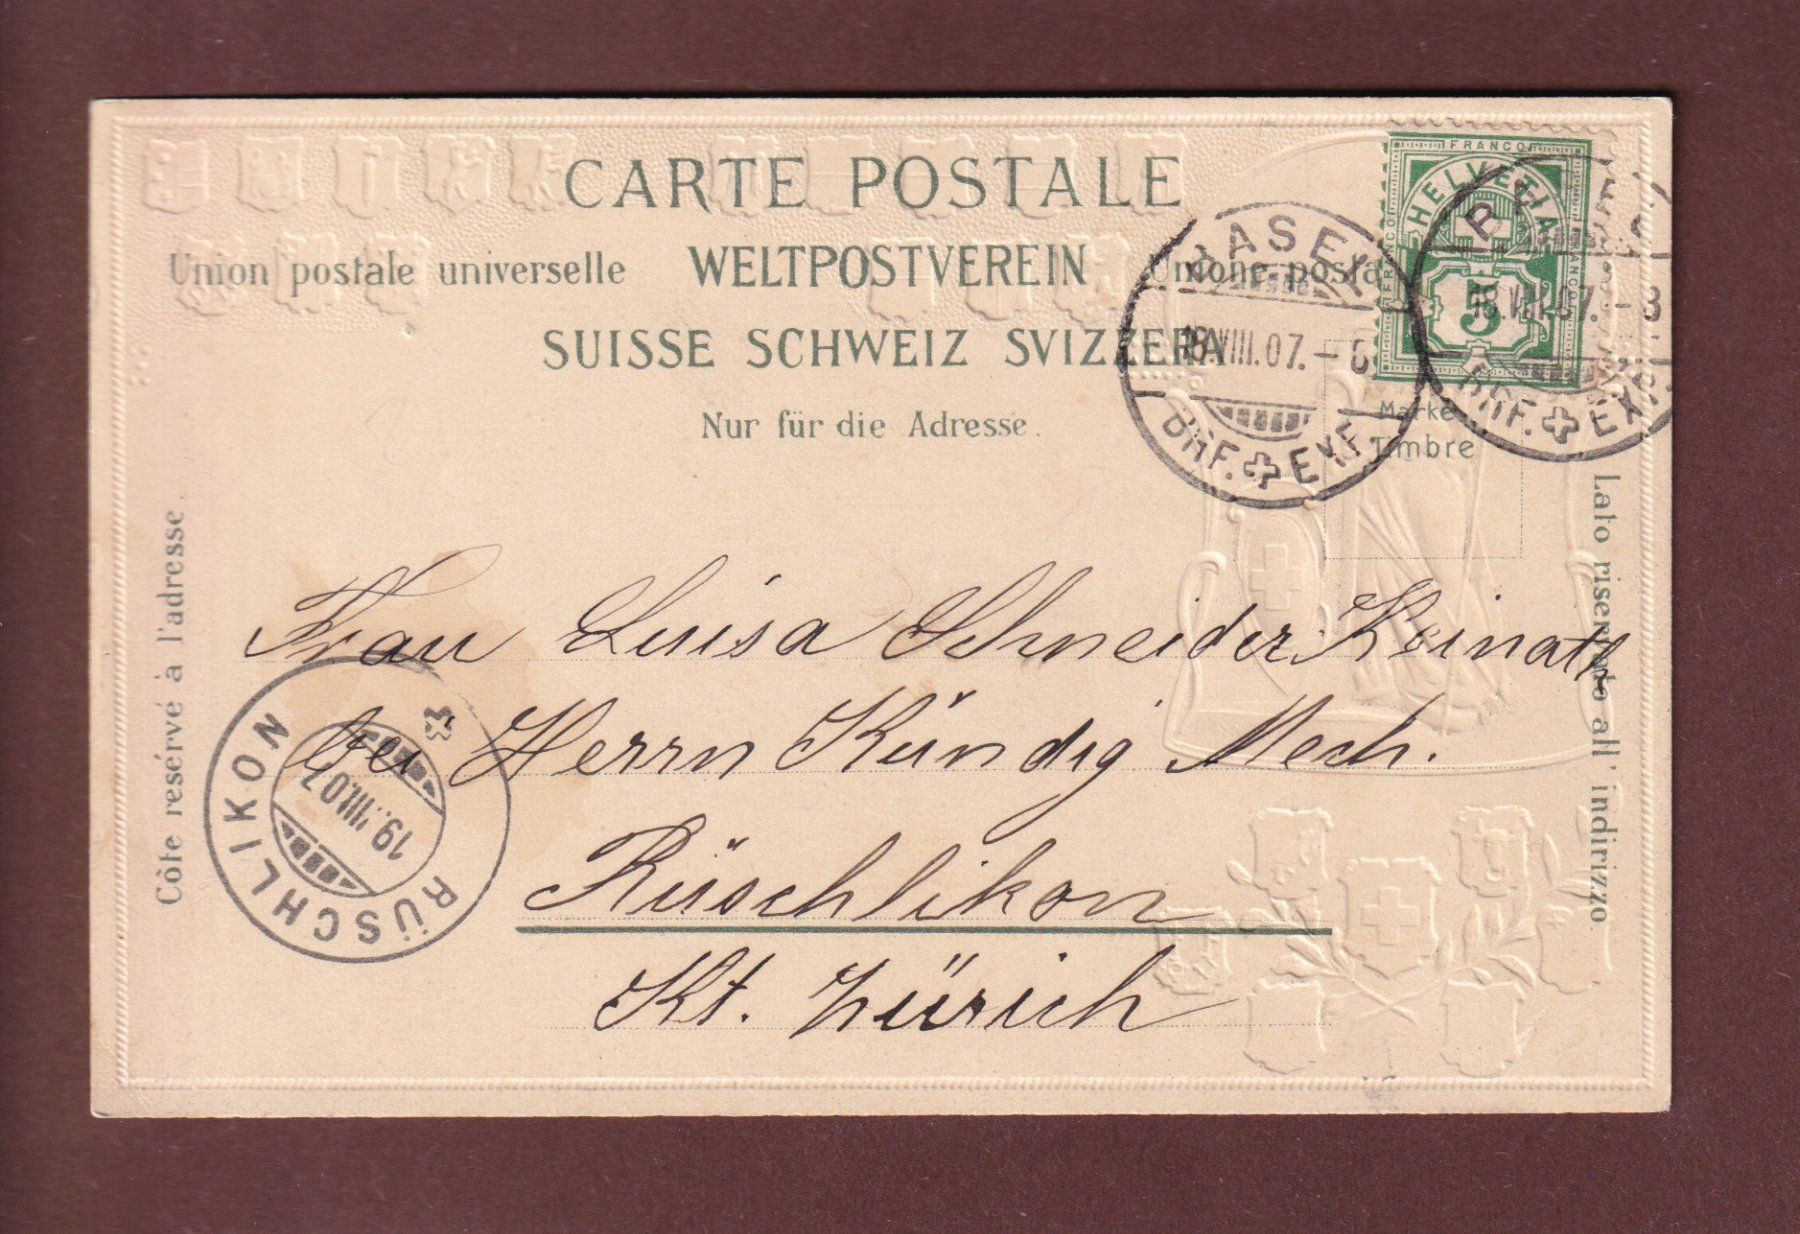 CARTE POSTALE
Union postale universelle WELTPOSTVEREIN Unione posta
SUISSE SCHWEIZ SVIZZERA
Nur für die Adresse.
FRANCO
HELVETIA
FRANCO
FRANCO
5
BASEL
18.VIII.07.-
BHF. EXP.
18.VIII.07.-8
BHF. EXP
Marke
Timbre
Côte resérvé à l'adresse
Lato riservato all' indirizzo.
Frau Luisa Schneider Keinath
bei Herrn Kündig Mech.
Rüschlikon
Kt. Zürich
RÜSCHLIKON
19.VIII.07